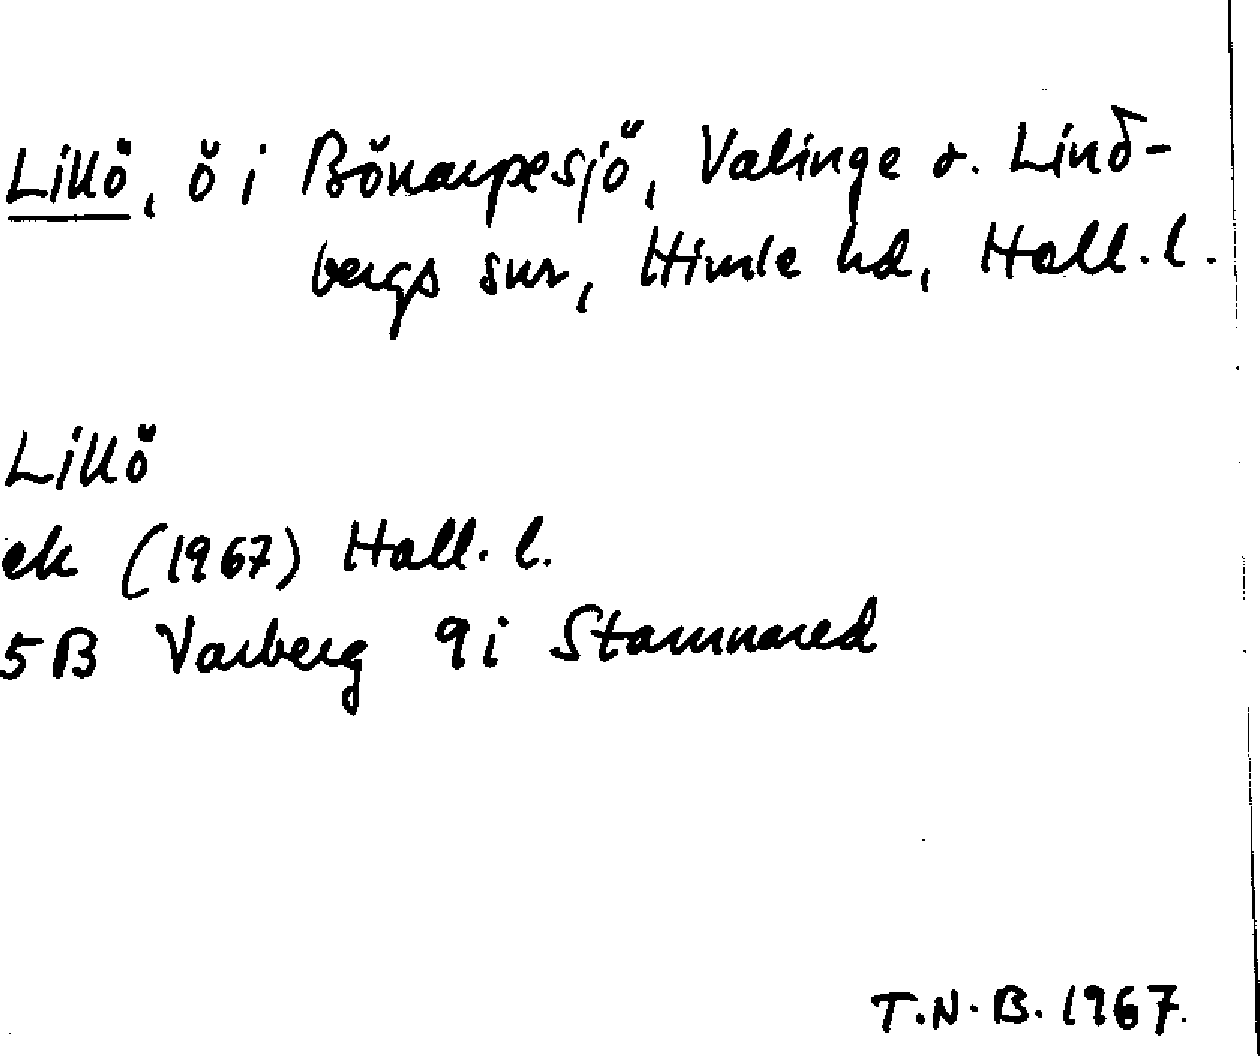 Lillö, ö i Bönarpesjö, Valinge o. Lind-
bergs snr, Himle hd, Hall. l.
Lillö
ek (1967) Hall. l.
5B Varberg 9i Stamnared
T.N.B. 1967.